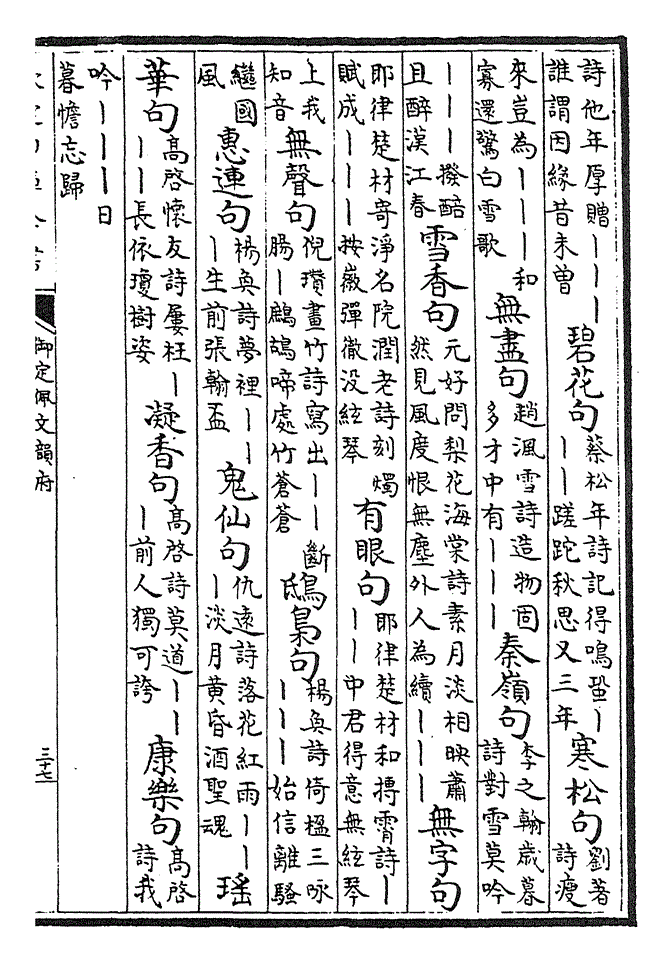 詩他年厚贈｜｜｜誰謂因緣昔未曽 碧花句 蔡松年詩記得鳴蛩｜｜｜蹉跎秋思又三年 寒松句 劉著詩瘦
來豈為｜｜｜和寡還驚白雪歌 無盡句 趙渢雪詩造物固多才中有｜｜｜ 秦嶺句 李之翰歳暮詩對雪莫吟
｜｜｜撥醅且醉漢江春 雪香句 元好問梨花海棠詩素月淡相映蕭然見風度恨無塵外人為續｜｜｜ 無字句
耶律楚材寄淨名院潤老詩刻燭賦成｜｜｜按徽彈徹没絃琴 有眼句 耶律楚材和摶霄詩｜｜｜中君得意無絃琴
上我知音 無聲句 倪瓚畫竹詩寫出｜｜斷腸｜鷓鴣啼處竹蒼蒼 鴟梟句 楊奐詩倚楹三咏｜｜｜始信離騷
繼國風 惠連句 楊奐詩夢裡｜｜｜生前張翰盃 鬼仙句 仇遠詩落花紅雨｜｜｜淡月黄昏酒聖魂 瑤
華句 高啓懷友詩屢枉｜｜｜長依瓊樹姿 凝香句 高啓詩莫道｜｜｜前人獨可誇 康樂句 高啓詩我
吟｜｜｜日暮憺忘歸
御定佩文韻府
三十七